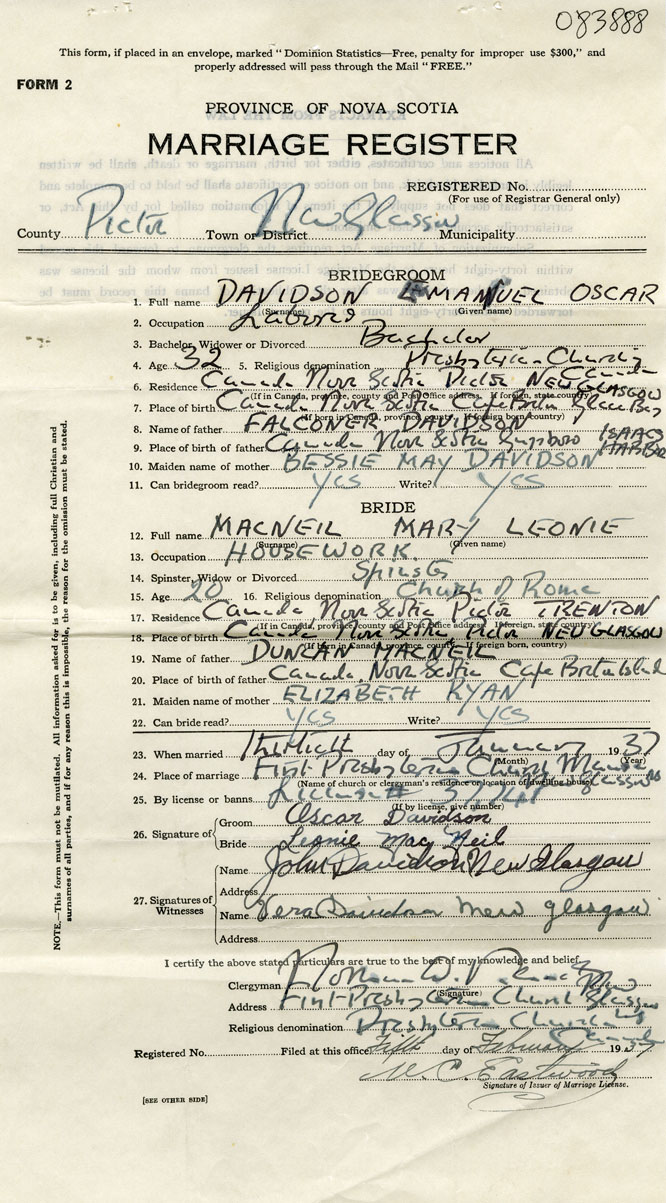 083888
This form, if placed in an envelope, marked "Dominion Statistics—Free, penalty for improper use $300," and
properly addressed will pass through the Mail "FREE."
FORM 2
PROVINCE OF NOVA SCOTIA
MARRIAGE REGISTER
REGISTERED No.
(For use of Registrar General only)
County Pictou Town or District New Glasgow Municipality
BRIDEGROOM
1. Full name DAVIDSON EMANUEL OSCAR
(Surname) (Given name)
2. Occupation Laborer
3. Bachelor, Widower or Divorced Bachelor
4. Age 32 5. Religious denomination Presbyterian Church in Canada
6. Residence Canada Nova Scotia Pictou NEW GLASGOW
(If in Canada, province, county and Post Office address. If foreign, state country)
7. Place of birth Canada Nova Scotia Cape Breton Glace Bay
(If born in Canada, province, county. If foreign born, country)
8. Name of father FALCONER DAVIDSON
9. Place of birth of father Canada Nova Scotia Guysboro ISAACS HARBOR
10. Maiden name of mother BESSIE MAY DAVIDSON
11. Can bridegroom read? yes Write? yes
BRIDE
12. Full name MACNEIL MARY LEONIE
(Surname) (Given name)
13. Occupation HOUSEWORK
14. Spinster, Widow or Divorced Spinster
15. Age 20 16. Religious denomination Church of Rome
17. Residence Canada Nova Scotia Pictou TRENTON
(If in Canada, province, county and Post Office address. If foreign, state country)
18. Place of birth Canada Nova Scotia Pictou NEW GLASGOW
(If born in Canada, province, county. If foreign born, country)
19. Name of father DUNCAN MACNEIL
20. Place of birth of father Canada Nova Scotia Cape Breton Island
21. Maiden name of mother ELIZABETH RYAN
22. Can bride read? yes Write? yes
23. When married day of January 1937
(Month) (Year)
24. Place of marriage First Presbyterian Church Manse New Glasgow NS
(Name of church or clergyman's residence or location of dwelling house)
25. By license or banns License #
(If by license, give number)
26. Signature of Groom Oscar Davidson
Bride Leonie MacNeil
27. Signatures of Witnesses Name John Davidson New Glasgow
Address
Name Vera Davidson new glasgow
Address
I certify the above stated particulars are true to the best of my knowledge and belief.
Clergyman
(Signature)
Address First Presbyterian Church New Glasgow
Religious denomination Presbyterian Church in Canada
Registered No. Filed at this office Fifth day of February 1937
W. C. Eastwood
Signature of Issuer of Marriage License.
[SEE OTHER SIDE]
NOTE.—This form must not be mutilated. All information asked for is to be given, including full Christian and
surnames of all parties, and if for any reason this is impossible, the reason for the omission must be stated.